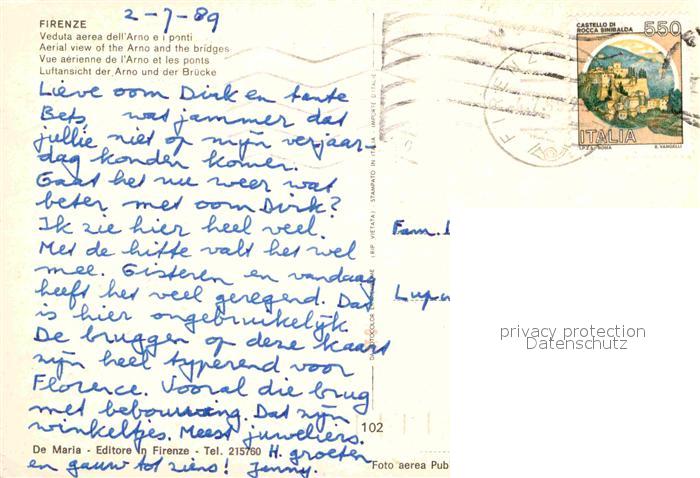 2-7-89
FIRENZE
Veduta aerea dell'Arno e i ponti
Aerial view of the Arno and the bridges
Vue aérienne de l'Arno et les ponts
Luftansicht der Arno und der Brücke
Lieve oom Dirk en tante
Bets wat jammer dat
jullie niet op mijn verjaar-
dag konden komen.
Gaat het nu weer wat
beter met oom Dirk?
Ik zie hier heel veel.
Met de hitte valt het wel
mee. Gisteren en vandaag
heeft het veel geregend. Dat
is hier ongebruikelijk
De bruggen op deze kaart
zijn heel typerend voor
Florence. Vooral die brug
met bebouwing. Dat zijn
winkeltjes. Meest juweliers.
H. groeten
en gauw tot ziens! Jenny.
De Maria - Editore in Firenze - Tel. 215760
102
Foto aerea Pub
(RIP. VIETATA) STAMPATO IN ITALIA IMPORTÉ D'ITALIE
CASTELLO DI
ROCCA SINIBALDA
550
ITALIA
I.P.Z.S. ROMA
E. VANGELLI
FIRENZ
Fam.
privacy protection
Datenschutz